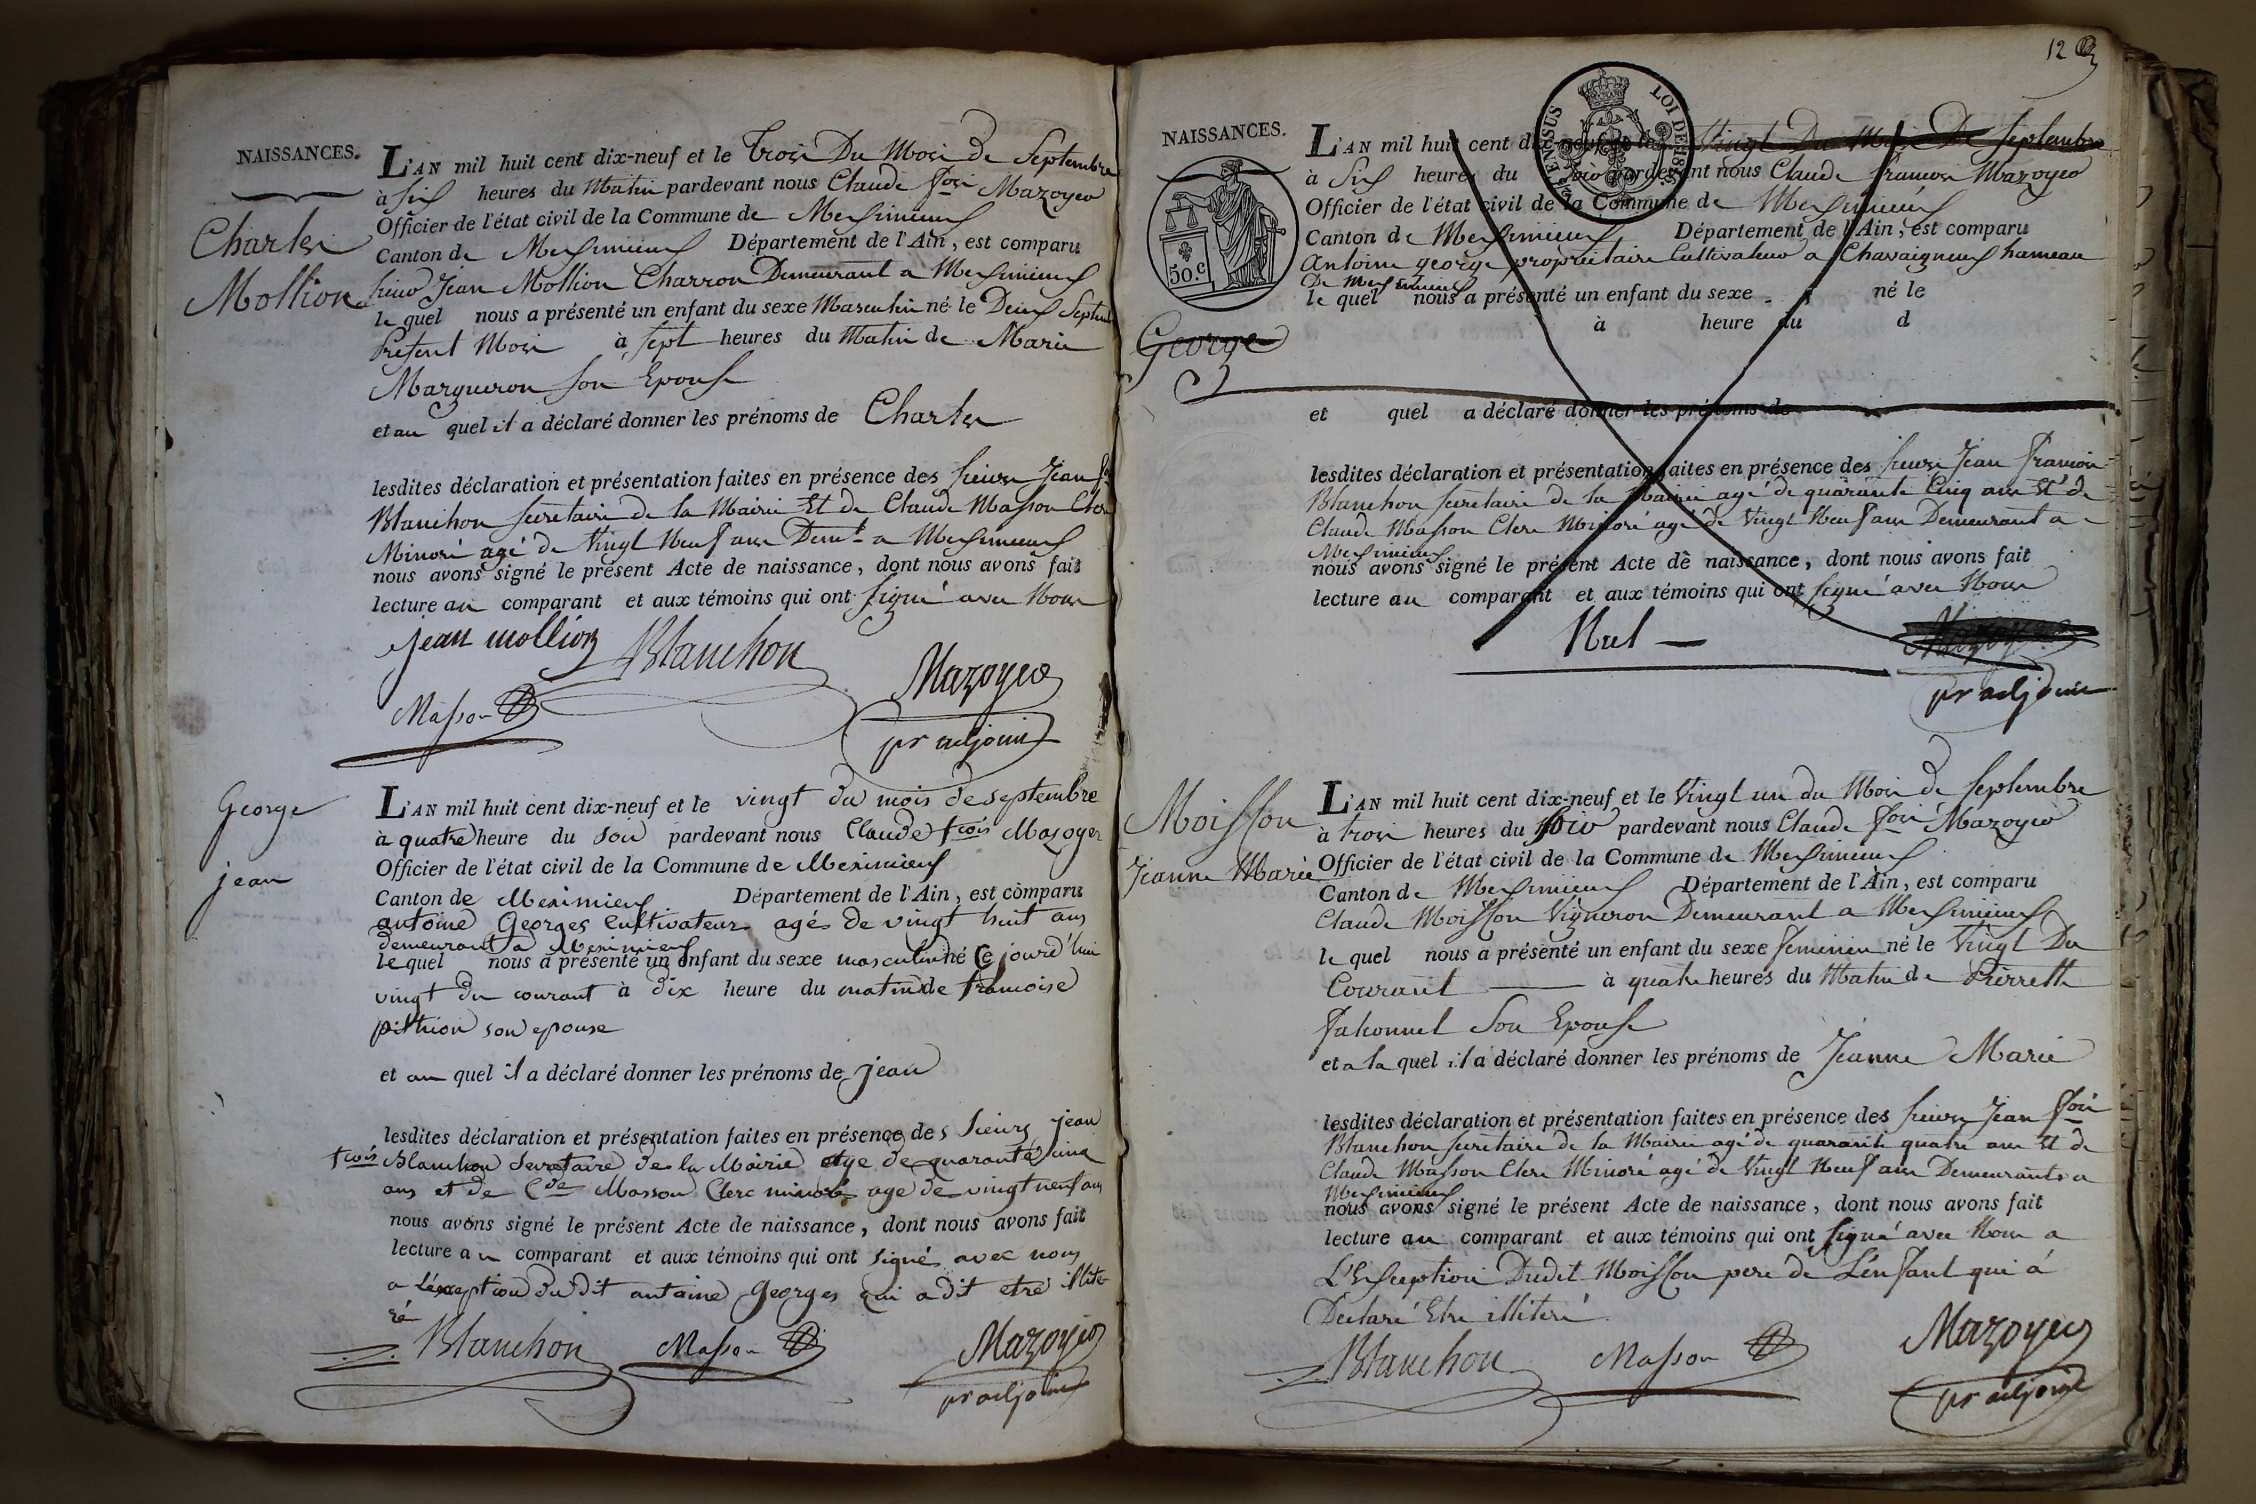 NAISSANCES.
Charles
Mollion
L'AN mil huit cent dix-neuf et le trois Du Mois de Septembre
à six heures du Matin pardevant nous Claude fois Mazoyer
Officier de l'état civil de la Commune de Meximieux
Canton de Meximieux Département de l'Ain, est comparu
sieur Jean Mollion Charron Demeurant a Meximieux
le quel nous a présenté un enfant du sexe Masculin né le Deux Septem
Present Mois à sept heures du Matin de Marie
Margueron son Epouse
et au quel il a déclaré donner les prénoms de Charles
lesdites déclaration et présentation faites en présence des sieurs Jean fs
Blanchon secretaire de la Mairie Et de Claude Masson Clerc
Minoré agé de Vingt Neuf ans Demt a Meximieux
nous avons signé le présent Acte de naissance, dont nous avons fait
lecture au comparant et aux témoins qui ont signé avec Nous
jean mollion Blanchon
Masson Mazoyer
pr adjoint
George
jean
L'AN mil huit cent dix-neuf et le vingt du mois de septembre
à quatre heure du soir pardevant nous Claude fcois Mazoyer
Officier de l'état civil de la Commune de Meximieux
Canton de Meximieux Département de l'Ain, est comparu
antoine Georges cultivateur agés de vingt huit ans
demeurant a Meximieux
le quel nous a présenté un enfant du sexe masculin né Ce jourd'hui
vingt du courant à dix heure du matin de francoise
pithion son epouse
et au quel il a déclaré donner les prénoms de jean
lesdites déclaration et présentation faites en présence des sieurs jean
fcois Blanchon Secretaire de la Mairie age de quarante cinq
ans et de Cde Masson Clerc minoré age de vingt neuf ans
nous avons signé le présent Acte de naissance, dont nous avons fait
lecture au comparant et aux témoins qui ont signés avec nous
a l'exception du dit antoine Georges qui a dit etre illite
ré
Blanchon Masson Mazoyer
pr adjoint
12
NAISSANCES.
LOI DE 1816.
50.c
George
L'AN mil huit cent dix-neuf et le Vingt Du Mois De Septembre
à Six heures du soir pardevant nous Claude francois Mazoyer
Officier de l'état civil de la Commune de Meximieux
Canton de Meximieux Département de l'Ain, est comparu
Antoine george propriétaire Cultivateur a Chavaigneux hameau
De Meximieux
le quel nous a présenté un enfant du sexe né le
à heure du d
et quel a déclaré donner les prénoms de
lesdites déclaration et présentation faites en présence des sieurs Jean francois
Blanchon secretaire de la Mairie agé de quarante Cinq ans Et de
Claude Masson Clerc Minoré agé de Vingt Neuf ans Demeurant a
Meximieux
nous avons signé le présent Acte de naissance, dont nous avons fait
lecture au comparant et aux témoins qui ont signé avec Nous
Nul Mazoyer
pr adjoint
Moisson
Jeanne Marie
L'AN mil huit cent dix-neuf et le Vingt un du Mois de Septembre
à trois heures du soir pardevant nous Claude fois Mazoyer
Officier de l'état civil de la Commune de Meximieux
Canton de Meximieux Département de l'Ain, est comparu
Claude Moisson Vigneron Demeurant a Meximieux
le quel nous a présenté un enfant du sexe feminin né le Vingt Du
Courant à quatre heures du Matin de Pierrette
Falconnet Son Epouse
et a la quel il a déclaré donner les prénoms de Jeanne Marie
lesdites déclaration et présentation faites en présence des sieurs Jean fois
Blanchon secretaire de la Mairie agé de quarante quatre ans Et de
Claude Masson Clerc Minoré agé de Vingt Neuf ans Demeurants a
Meximieux
nous avons signé le présent Acte de naissance, dont nous avons fait
lecture au comparant et aux témoins qui ont signé avec Nous a
L'Exception Dudit Moisson pere de L'enfant qui a
Declaré Etre illiteré
Blanchon Masson Mazoyer
pr adjoint